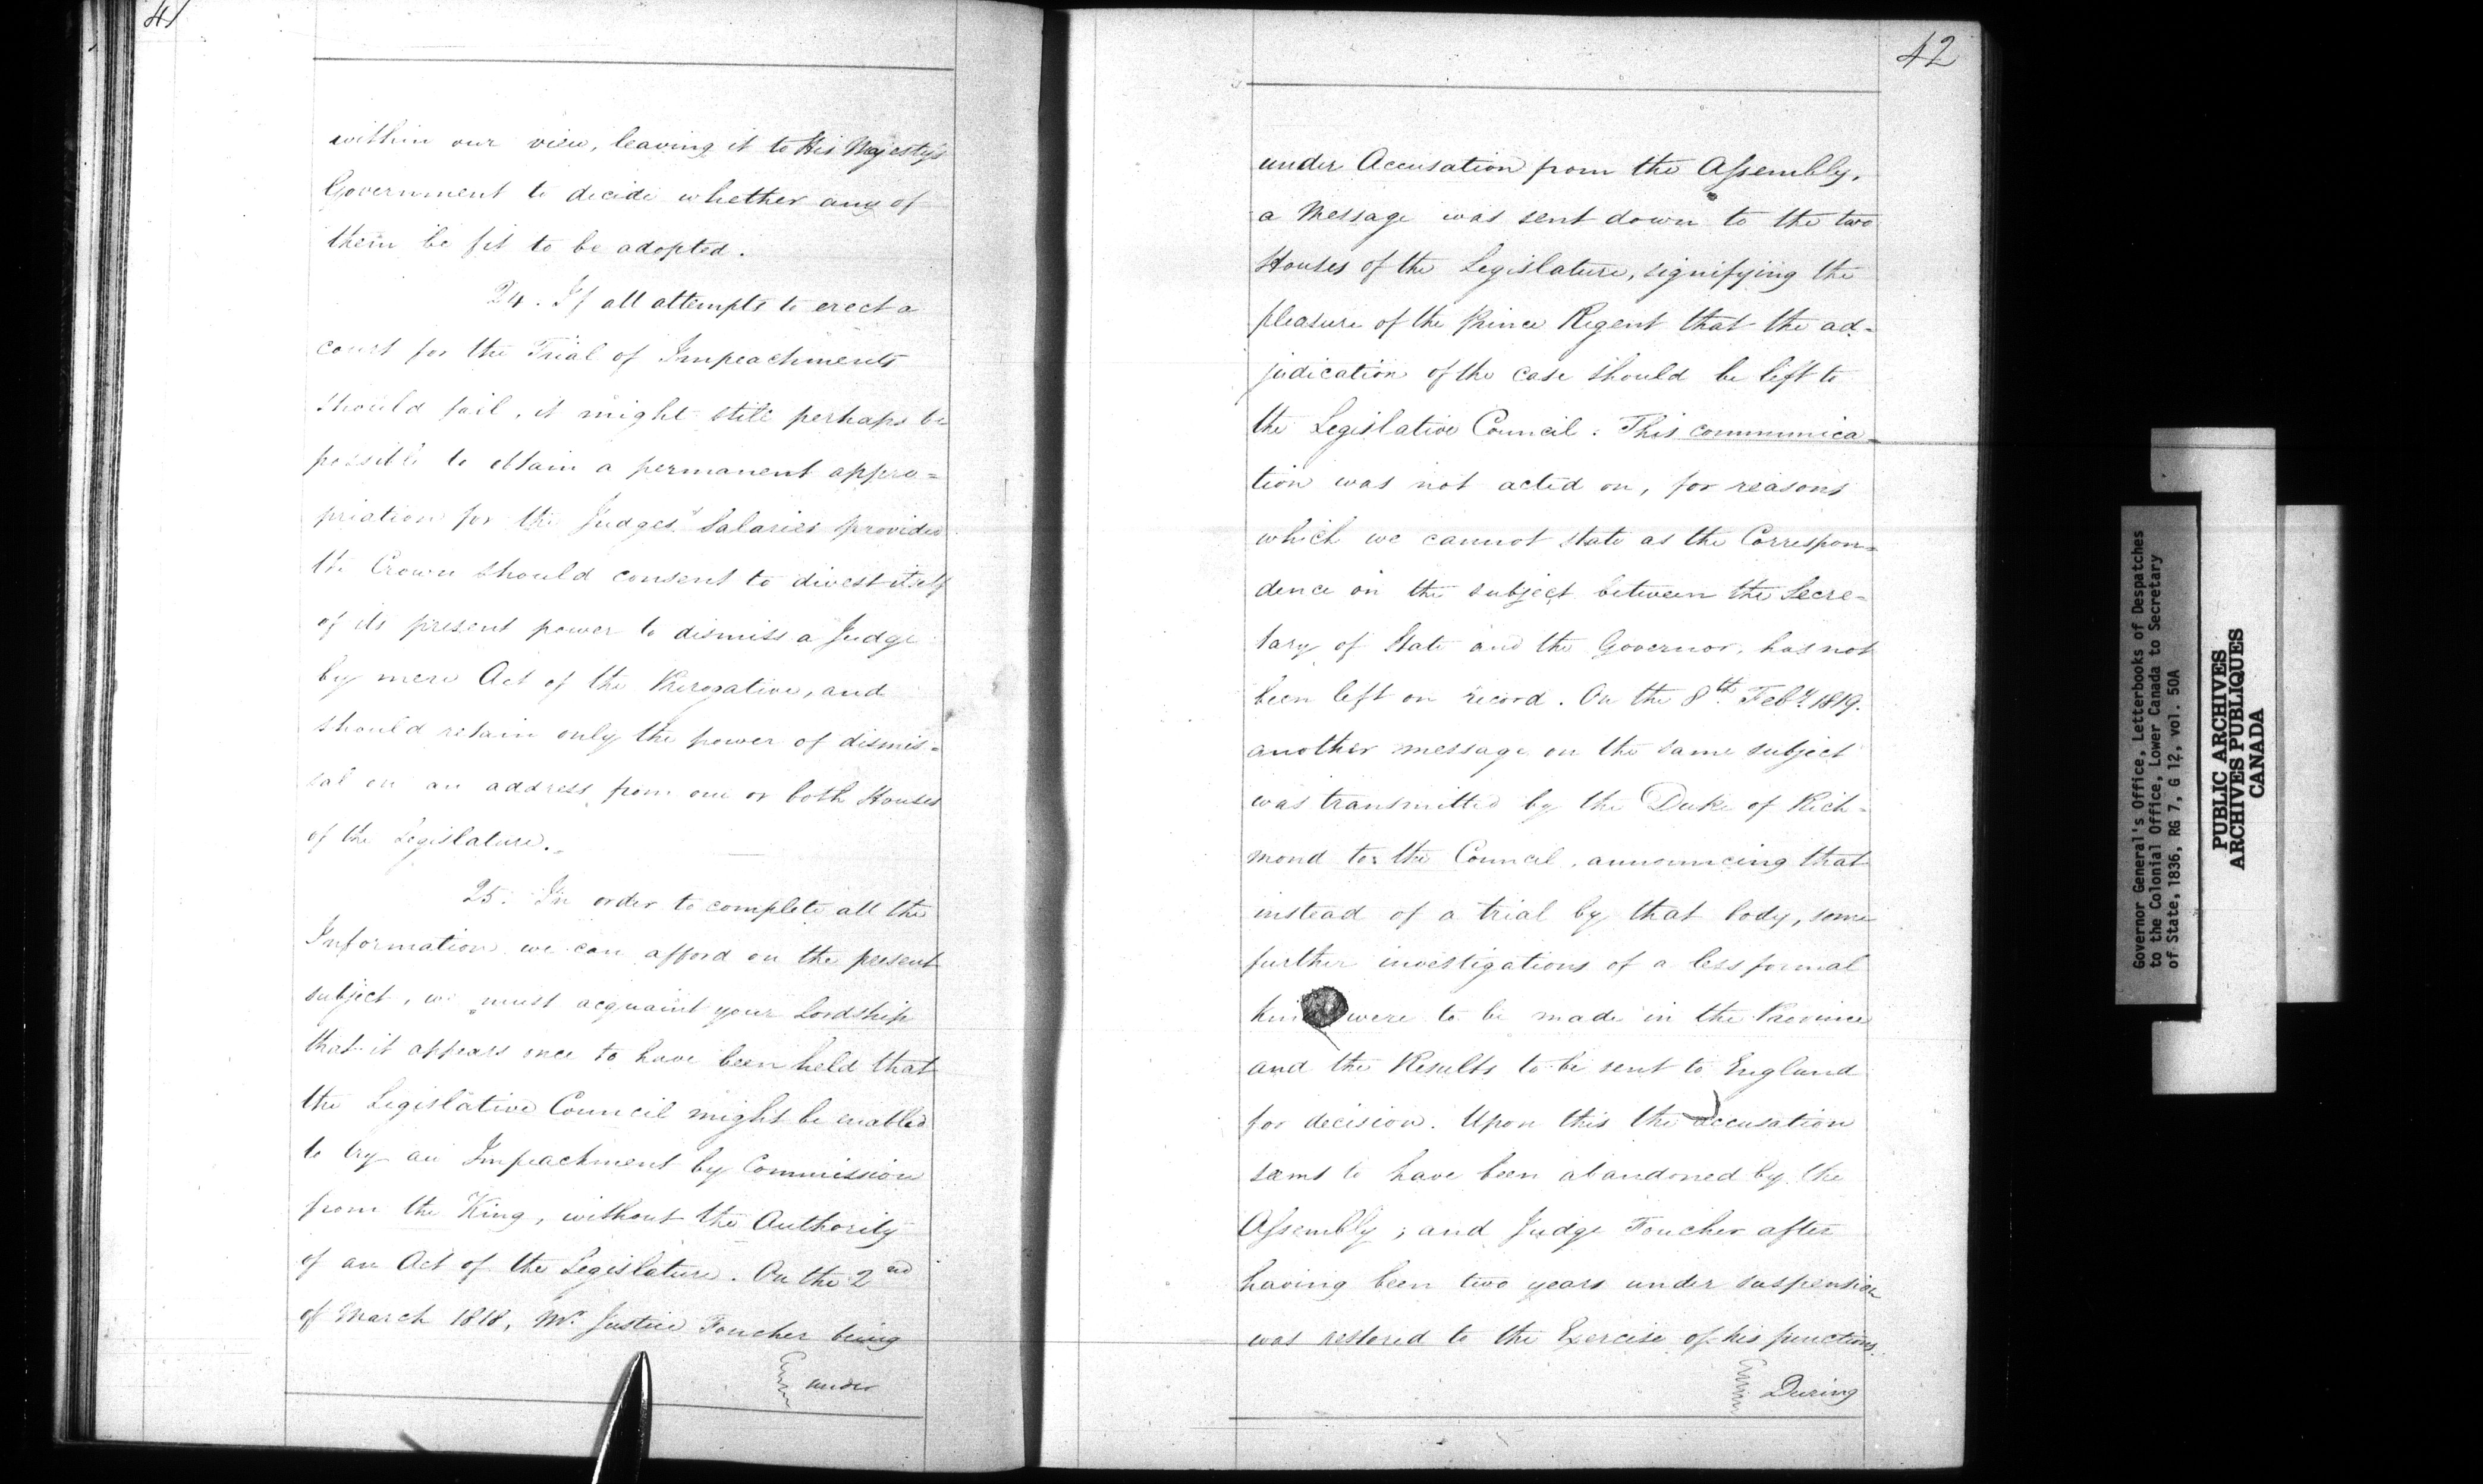 41
within our view, leaving it to His Majesty's
Government to decide whether any of
them be fit to be adopted.
24. If all attempts to erect a
court for the Trial of Impeachments
should fail, it might still perhaps be
possible to obtain a permanent appro=
priation for the Judges' Salaries provided
the Crown should consent to divest itself
of its present power to dismiss a Judge
by mere Act of the Prerogative, and
should retain only the power of dismis=
sal on an address from one or both Houses
of the Legislature.
25. In order to complete all the
Information we can afford on the present
subject, we must acquaint your Lordship
that it appears once to have been held that
the Legislative Council might be enabled
to try an Impeachment by Commission
from the King, without the Authority
of an Act of the Legislature. On the 2nd
of March 1818, Mr. Justice Foucher being
under
42
under Accusation from the Assembly,
a Message was sent down to the two
Houses of the Legislature, signifying the
pleasure of the Prince Regent that the ad=
judication of the case should be left to
the Legislative Council: This communica=
tion was not acted on, for reasons
which we cannot state as the Correspon=
dence on the subject between the Secre=
tary of State and the Governor, has not
been left on record. On the 8th Feby 1819.
another message on the same subject
was transmitted by the Duke of Rich=
mond to the Council, announcing that
instead of a trial by that body, some
further investigations of a less formal
kind were to be made in the Province
and the Results to be sent to England
for decision. Upon this the accusation
seems to have been abandoned by the
Assembly; and Judge Foucher after
having been two years under suspension
was restored to the Exercise of his functions.
During
Governor General's Office, Letterbooks of Despatches
to the Colonial Office, Lower Canada to Secretary
of State, 1836, RG 7, G 12, vol. 50A
PUBLIC ARCHIVES
ARCHIVES PUBLIQUES
CANADA